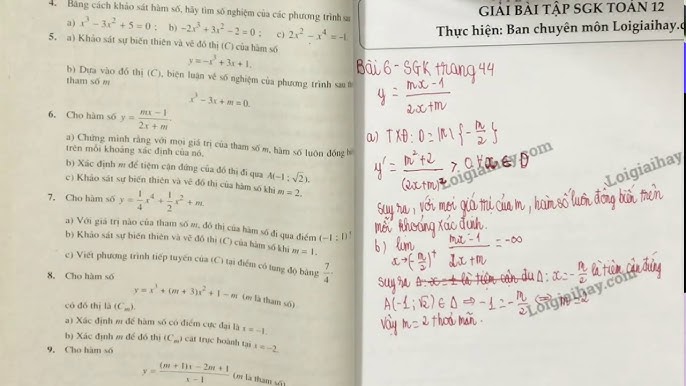 4. Bằng cách khảo sát hàm số, hãy tìm số nghiệm của các phương trình sau
a) x³ − 3x² + 5 = 0 ; b) −2x³ + 3x² − 2 = 0 ; c) 2x² − x⁴ = −1.
5. a) Khảo sát sự biến thiên và vẽ đồ thị (C) của hàm số
y = −x³ + 3x + 1.
b) Dựa vào đồ thị (C), biện luận về số nghiệm của phương trình sau
tham số m
x³ − 3x + m = 0.
6. Cho hàm số y = (mx − 1)/(2x + m).
a) Chứng minh rằng với mọi giá trị của tham số m, hàm số luôn đồng
trên mỗi khoảng xác định của nó.
b) Xác định m để tiệm cận đứng của đồ thị đi qua A(−1 ; √2).
c) Khảo sát sự biến thiên và vẽ đồ thị của hàm số khi m = 2.
7. Cho hàm số y = 1/4 x⁴ + 1/2 x² + m.
a) Với giá trị nào của tham số m, đồ thị của hàm số đi qua điểm (−1 ; 1)
b) Khảo sát sự biến thiên và vẽ đồ thị (C) của hàm số khi m = 1.
c) Viết phương trình tiếp tuyến của (C) tại điểm có tung độ bằng 7/4.
8. Cho hàm số
y = x³ + (m + 3)x² + 1 − m (m là tham số)
có đồ thị là (Cₘ).
a) Xác định m để hàm số có điểm cực đại là x = −1.
b) Xác định m để đồ thị (Cₘ) cắt trục hoành tại x = −2.
9. Cho hàm số
y = ((m + 1)x − 2m + 1)/(x − 1) (m là tham số)
GIẢI BÀI TẬP SGK TOÁN 12
Thực hiện: Ban chuyên môn Loigiaihay.
Bài 6 - SGK trang 44
y = (mx − 1)/(2x + m)
a) TXĐ: D = ℝ \ {−m/2}
y' = (m² + 2)/(2x + m)² > 0 ∀x ∈ D
Suy ra, với mọi giá trị của m, hàm số luôn đồng biến trên
mỗi khoảng xác định.
b) lim x→(−m/2)⁺ (mx − 1)/(2x + m) = −∞
Suy ra Δ: x = −m/2 là tiệm cận đứng
A(−1; √2) ∈ Δ ⇔ −1 = −m/2 ⇔ m = 2
Vậy m = 2 thoả mãn.
Loigiaihay.com
Loigiaihay.com
Loigiaihay.com